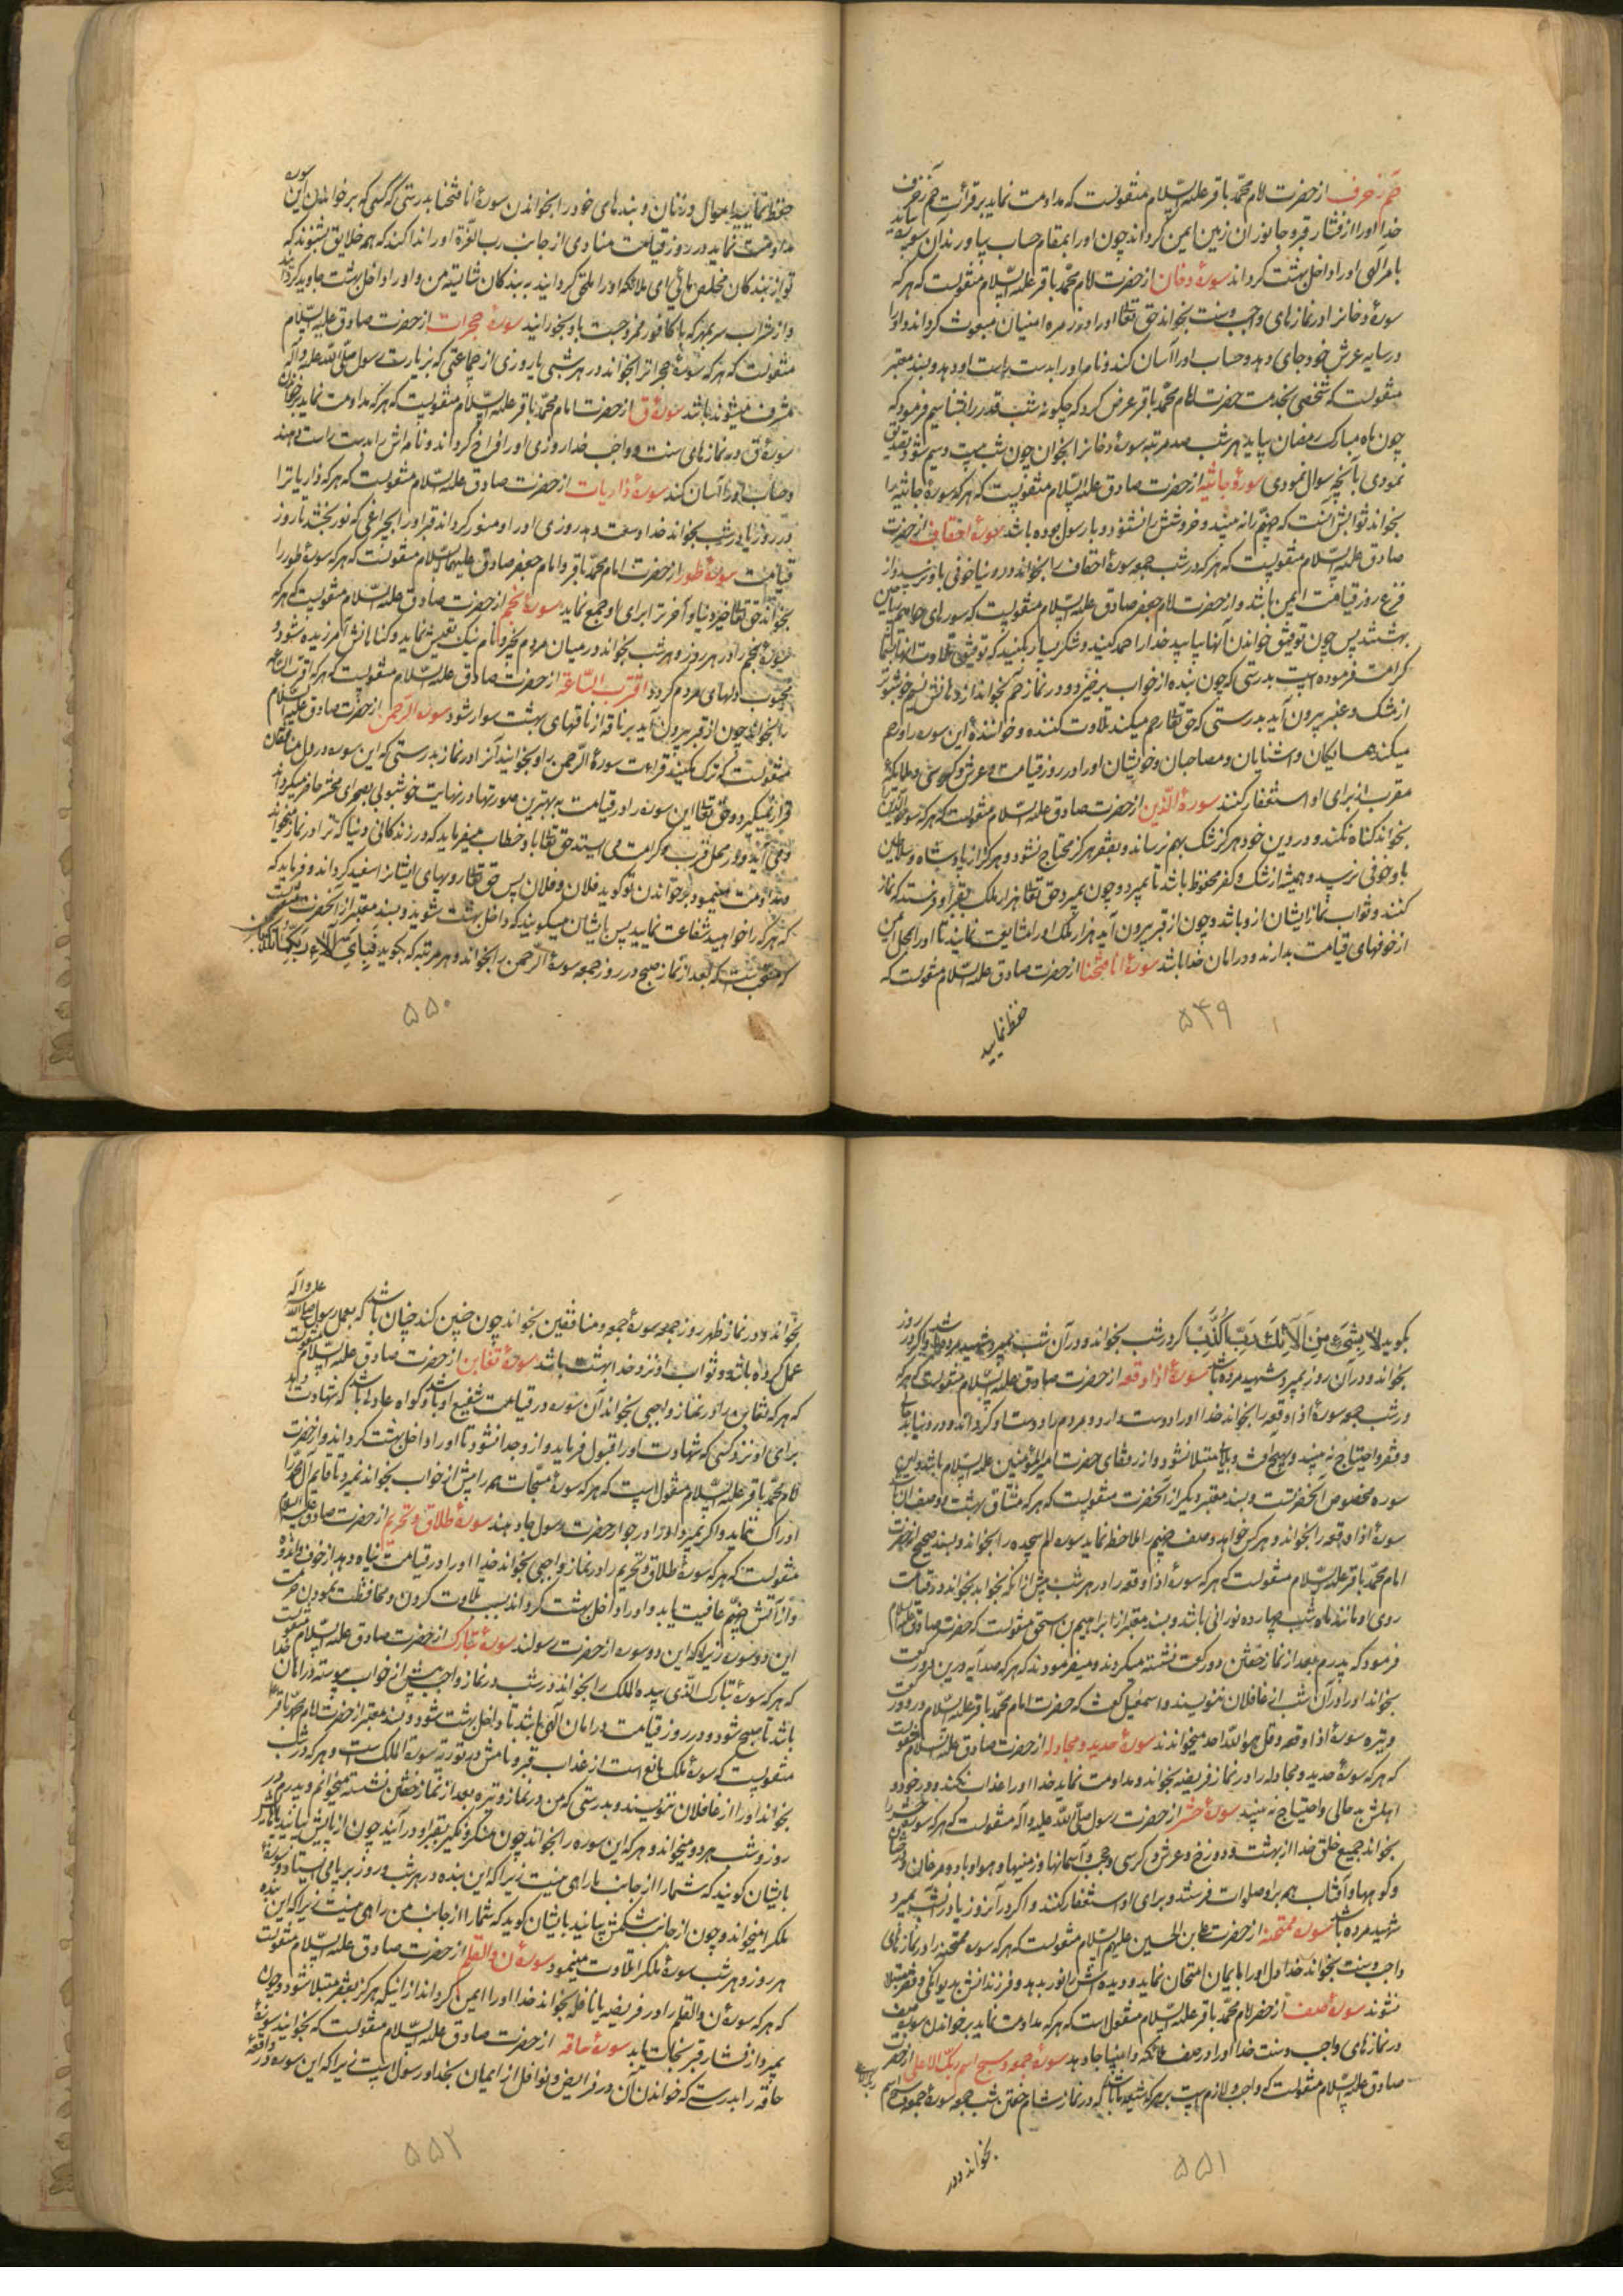 حم زخرف از حضرت امام محمد باقر علیه السلام منقولست که مداومت نماید بر قرائت حم زخرف
خدا او را از فشار قبر و جانوران زمین ایمن گرداند چون او را بمقام حساب بیاورند آن سوره بیاید
بامر الهی او را داخل بهشت گرداند سورهٔ دخان از حضرت امام محمد باقر علیه السلام منقولست که هر که
سورهٔ دخانرا در نمازهای واجب و سنت بخواند حق تعالی او را در زمرهٔ امنیان مبعوث گرداند و او را
در سایه عرش خود جای دهد و حساب او را آسان کند و نامه او را بدست راست او دهد و بسند معتبر
منقولست که شخصی بخدمت حضرت امام محمد باقر عرض کرد که چگونه شب قدر را بشناسیم فرمود که
چون ماه مبارک رمضان بیاید هر شب صد مرتبه سورهٔ دخانرا بخوان چون شب بیست و سیم شود تصدیق
نمودی بآنچه سوال نمودی سورهٔ جاثیه از حضرت صادق علیه السلام منقولست که هر که سورهٔ جاثیه را
بخواند ثوابش آنست که جهنم را نه بیند و خروشش را نشنود و با رسول بوده باشد سورهٔ احقاف از حضرت
صادق علیه السلام منقولست که هر که در شب جمعه سورهٔ احقاف را بخواند در دنیا خوفی باو نرسد و از
فزع روز قیامت ایمن باشد و از حضرت امام جعفر صادق علیه السلام منقولست که سورهای حوامیم ریاحین
بهشتند پس چون توفیق خواندن آنها بیابید خدا را حمد کنید و شکر بسیار بکنید که توفیق تلاوت آنها بشما
کرامت فرموده است بدرستی که چون بنده از خواب برخیزد و در نماز حم بخواند از دهانش نسیم خوشبوتر
از مشک و عنبر بیرون آید بدرستی که حق تعالی رحم میکند تلاوت کننده و خوانندهٔ این سوره را و رحم
میکند همسایگان و آشنایان و مصاحبان و خویشان او را و در روز قیامت عرش و کرسی و ملائکه
مقرب از برای او استغفار کنند سورهٔ الذین از حضرت صادق علیه السلام منقولست که هر که سورهٔ الذین
بخواند گناه نکند و در دین خود هرگز شک بهم نرساند و بفقر هرگز محتاج نشود و هرگز از پادشاه و سلاطین
باو خوفی نرسد و همیشه از شک و کفر محفوظ باشد تا بمیرد و چون بمیرد حق تعالی هزار ملک بقبر او فرستد که نماز
کنند و ثواب نماز ایشان از او باشد و چون از قبر بیرون آید هزار ملک او را مشایعت نمایند تا او را بمحل امن
از خوفهای قیامت بدارند و در امان خدا باشد سورهٔ انا فتحنا از حضرت صادق علیه السلام منقولست که
حفظ نمایید
۵۴۹
حفظ نمایید اموال و زنان و بندهای خود را بخواندن سورهٔ انا فتحنا بدرستی که کسی که بر خواندن این سوره
مداومت نماید در روز قیامت منادی از جانب رب العزة او را ندا کند که همه خلایق بشنوند که
تو از بندگان مخلص مائی ای ملائکه او را ملحق گردانید به بندگان شایسته من و او را داخل بهشت جاوید گردانید
و از شراب سر بمهر که با کافور ممزوجست باو بخورانید سورهٔ حجرات از حضرت صادق علیه السلام
منقولست که هر که سورهٔ حجراترا بخواند در هر شبی یا روزی از جماعتی که بزیارت رسول صلی الله علیه و آله
مشرف میشوند باشد سورهٔ ق از حضرت امام محمد باقر علیه السلام منقولست که هر که مداومت نماید بر خواندن
سورهٔ ق در نمازهای سنت و واجب خدا روزی او را فراخ گرداند و نامه اش را بدست راست دهند
و حساب او را آسان کند سورهٔ ذاریات از حضرت صادق علیه السلام منقولست که هر که ذاریاترا
در روز یا در شب بخواند خدا وسعت دهد روزی او را و منور گرداند قبر او را بچراغی که نور بخشد تا روز
قیامت سورهٔ طور از حضرت امام محمد باقر و امام جعفر صادق علیهما السلام منقولست که هر که سورهٔ طور را
بخواند حق تعالی خیر دنیا و آخرت را برای او جمع نماید سورهٔ النجم از حضرت صادق علیه السلام منقولست که هر که
سورهٔ نجم را در هر روز و هر شب بخواند در میان مردم بخیر و نام نیک تعیش نماید و گناهانش آمرزیده شود و
محبوب دلهای مردم گردد اقتربت الساعة از حضرت صادق علیه السلام منقولست که هر که اقتربت الساعه
را بخواند چون از قبر بیرون آید بر ناقه از ناقهای بهشت سوار شود سورهٔ الرحمن از حضرت صادق علیه السلام
منقولست که ترک مکنید قراءت سورهٔ الرحمن را و بخوانید آنرا در نماز بدرستی که این سوره در دل منافقان
قرار نمیگیرد و حق تعالی این سوره را در قیامت به بهترین صورتها و در نهایت خوشبویی بصحرای محشر حاضر میگرداند
و می آید و در محل قرب و کرامت می ایستد حق تعالی باو خطاب میفرماید که در زندگانی دنیا که ترا در نماز میخواند
و مداومت مینمود بر خواندن تو گوید فلان و فلان پس حق تعالی رویهای ایشانرا سفید گرداند و فرماید که
که هر که را خواهید شفاعت نمایید پس بایشان میگویند که داخل بهشت شوید و بسند معتبر از آنحضرت منقولست
که سنت است که بعد از نماز صبح در روز جمعه سورهٔ الرحمن را بخواند و هر مرتبه که بگوید فبای آلاء ربکما تکذبان
۵۵۰
بگوید لا بشیء من آلائک رب اکذب گر در شب بخواند و در آن شب بمیرد شهید مرده باشد و اگر در روز
بخواند و در آن روز بمیرد شهید مرده باشد سورهٔ اذا وقعه از حضرت صادق علیه السلام منقولست که هر که
در شب جمعه سورهٔ اذا وقعه را بخواند خدا او را دوست دارد و مردم را دوست او گرداند و در دنیا بدحالی
و فقر و احتیاج نه بیند و بهیچ آفت و بلا مبتلا نشود و از رفقای حضرت امیر المؤمنین علیه السلام باشد و این
سوره مخصوص آنحضرتست و بسند معتبر دیگر از آنحضرت منقولست که هر که مشتاق بهشت و وصف آن باشد
سورهٔ اذا وقعه را بخواند و هر کس خواهد وصف جهنم را ملاحظه نماید سوره الم سجده را بخواند و بسند صحیح از حضرت
امام محمد باقر علیه السلام منقولست که هر که سورهٔ اذا وقعه را در هر شب پیش از آنکه بخوابد بخواند در قیامت
روی او مانند ماه شب چهارده نورانی باشد و بسند معتبر از ابراهیم بن اسحق منقولست که حضرت صادق علیه السلام
فرمود که پدرم بعد از نماز خفتن دو رکعت نشسته میکردند و میفرمودند که هر که صد آیه در این دو رکعت
بخواند او را در آن شب از غافلان ننویسند و اسمعیل گفت که حضرت امام محمد باقر علیه السلام در دو رکعت
وتیره سورهٔ اذا وقعه و قل هو الله احد میخواندند سورهٔ حدید و مجادله از حضرت صادق علیه السلام منقولست
که هر که سورهٔ حدید و مجادله را در نماز فریضه بخواند و مداومت نماید خدا او را عذاب نکند و در خود و
اهلش بدحالی و احتیاج نه بیند سورهٔ حشر از حضرت رسول صلی الله علیه و آله منقولست که هر که سورهٔ حشر را
بخواند جمیع خلق خدا از بهشت و دوزخ و عرش و کرسی و حجب و آسمانها و زمینها و هوا و باد و مرغان و درختان
و کوهها و آفتاب همه بر او صلوات فرستند و برای او استغفار کنند و اگر در آنروز یا در آنشب بمیرد
شهید مرده باشد سورهٔ ممتحنه از حضرت علی بن الحسین علیهم السلام منقولست که هر که سورهٔ ممتحنه را در نمازهای
واجب و سنت بخواند خدا دل او را بایمان امتحان نماید و دیده اش را نور بدهد و فرزندانش بدیوانگی و فقر مبتلا
نشوند سورهٔ صف از حضرت امام محمد باقر علیه السلام منقول است که هر که مداومت نماید بر خواندن سورهٔ صف
در نمازهای واجب و سنت خدا او را در صف ملائکه و انبیا جا دهد سورهٔ جمعه و سبح اسم ربک الاعلی از حضرت
صادق علیه السلام منقولست که واجب و لازم است بر هر که شیعه ما باشد که در نماز شام و خفتن شب جمعه سورهٔ جمعه و سبح اسم
ربک الاعلی
بخواند و در
۵۵۱
بخواند و در نماز ظهر روز جمعه سورهٔ جمعه و منافقین بخواند چون چنین کند چنان باشد که بعمل رسول صلی الله علیه و آله
عمل کرده باشد و ثواب او نزد خدا بهشت باشد سورهٔ تغابن از حضرت صادق علیه السلام منقولست
که هر که تغابن را در نماز واجبی بخواند آن سوره در قیامت شفیع او باشد و گواه عادلی باشد که شهادت دهد
برای او نزد کسی که شهادت او را قبول فرماید و از او جدا نشود تا او را داخل بهشت گرداند و از حضرت
امام محمد باقر علیه السلام منقول است که هر که سورهٔ مسبحات همه را پیش از خواب بخواند نمیرد تا قایم آل محمد را
ادراک نماید و اگر بمیرد او را در جوار حضرت رسول جا دهند سورهٔ طلاق و تحریم از حضرت صادق علیه السلام
منقولست که هر که سورهٔ طلاق و تحریم را در نماز واجبی بخواند خدا او را در قیامت پناه دهد از خوف و اندوه
و از آتش جهنم عافیت یابد و او را داخل بهشت گرداند بسبب تلاوت کردن و محافظت نمودن حرمت
این دو سوره زیرا که این دو سوره از حضرت رسولند سورهٔ تبارک از حضرت صادق علیه السلام منقولست
که هر که سورهٔ تبارک الذی بیده الملک را بخواند در شب در نماز واجب پیش از خواب پیوسته در امان خدا
باشد تا صبح شود و در روز قیامت در امان الهی باشد تا داخل بهشت شود و بسند معتبر از حضرت امام محمد باقر
منقولست که سورهٔ ملک مانع است از عذاب قبر و نامش در توریة سورة الملک است و هر که در شب
بخواند او را از غافلان ننویسند و بدرستی که من در نماز وتیره بعد از نماز خفتن نشسته میخوانم و پدرم در
روز و شب هر دو میخواند و هر که این سوره را بخواند چون منکر و نکیر بقبر او در آیند چون از پیش پایش بیایند پاهایش
بایشان گویند که شما را از جانب ما راهی نیست زیرا که این بنده در هر شب و روز بر پا می ایستاد و سورهٔ
ملک را میخواند و چون از جانب شکمش بیایند بایشان گوید که شما را از جانب من راهی نیست زیرا که این بنده
هر روز و هر شب سورهٔ ملک را تلاوت مینمود سورهٔ ن والقلم از حضرت صادق علیه السلام منقولست
که هر که سورهٔ ن والقلم را در فریضه یا نافله بخواند خدا او را ایمن گرداند از اینکه هرگز بفقر مبتلا شود و چون
بمیرد از فشار قبر نجات یابد سورهٔ حاقه از حضرت صادق علیه السلام منقولست که بخوانید سورهٔ
حاقه را بدرستی که خواندن آن در فرایض و نوافل از ایمان بخدا و رسول است زیرا که این سوره در واقعهٔ
۵۵۲